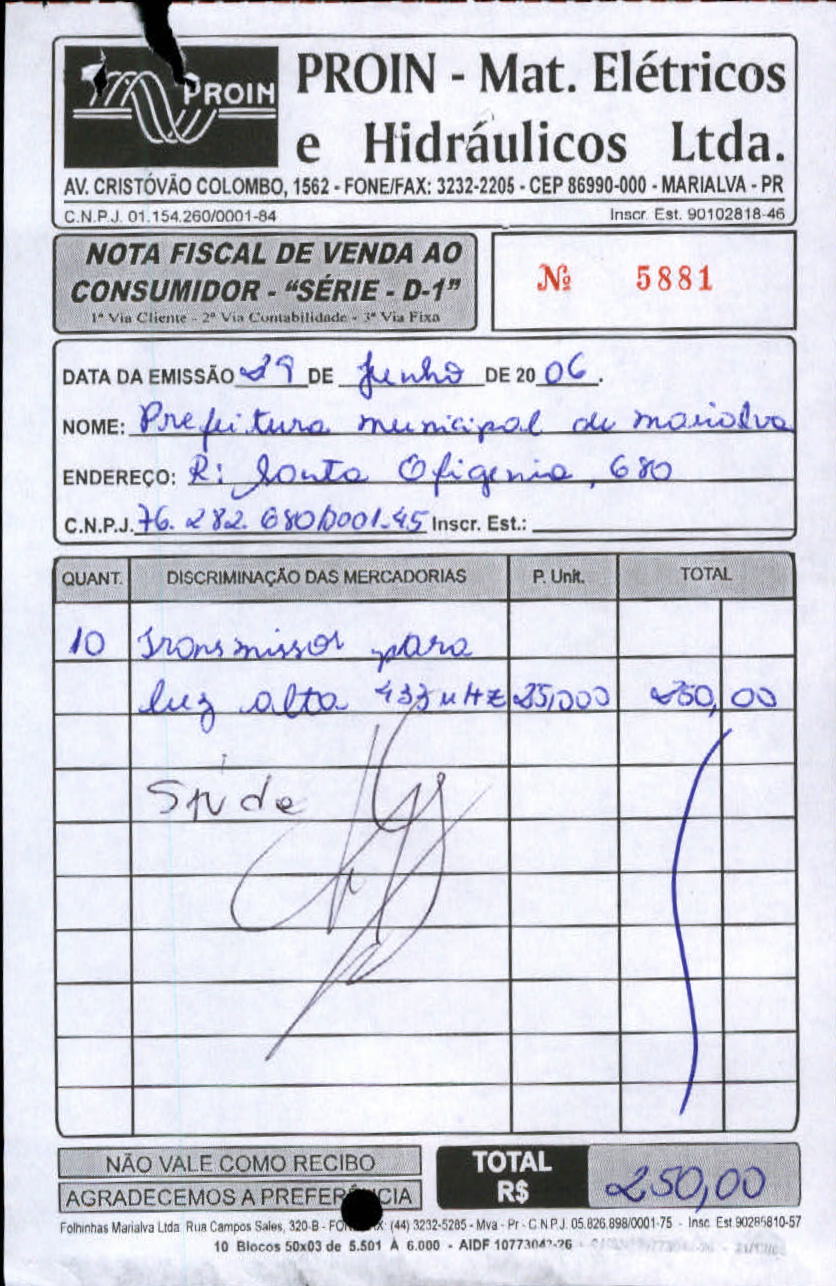 PROIN
PROIN - Mat. Elétricos
e Hidráulicos Ltda.
AV. CRISTÓVÃO COLOMBO, 1562 - FONE/FAX: 3232-2205 - CEP 86990-000 - MARIALVA - PR
C.N.P.J. 01.154.260/0001-84 Inscr. Est. 90102818-46
NOTA FISCAL DE VENDA AO
CONSUMIDOR - "SÉRIE - D-1"
1ª Via Cliente - 2ª Via Contabilidade - 3ª Via Fixa
Nº 5881
DATA DA EMISSÃO 29 DE Junho DE 2006.
NOME: Prefeitura municipal de marialva
ENDEREÇO: R: Santa Efigenia, 680
C.N.P.J. 76.282.680/0001-45 Inscr. Est.:
QUANT. DISCRIMINAÇÃO DAS MERCADORIAS P. Unit. TOTAL
10 Transmissor para
luz alta 433 MHZ 25,000 250,00
NÃO VALE COMO RECIBO
AGRADECEMOS A PREFER CIA
TOTAL
R$ 250,00
Folhinhas Marialva Ltda Rua Campos Sales, 320-B - FON X: (44) 3232-5285 - Mva - Pr - C.N.P.J. 05.826.898/0001-75 - Insc. Est.90285810-57
10 Blocos 50x03 de 5.501 À 6.000 - AIDF 10773042-26